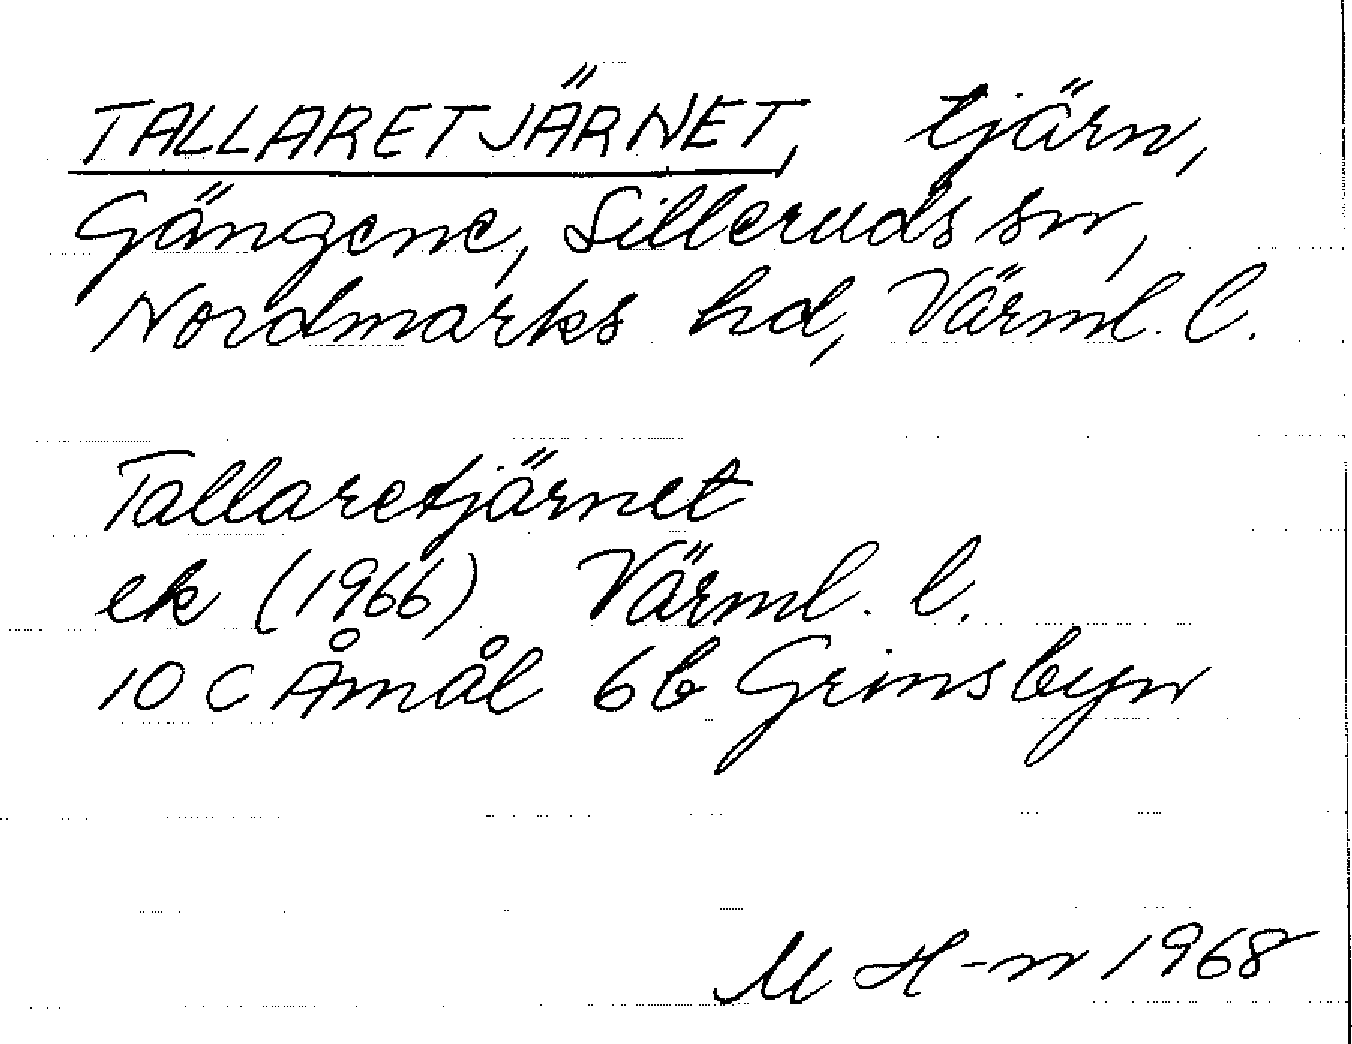 TALLARETJÄRNET, tjärn,
Gängene, Silleruds sn,
Nordmarks hd, Värml. l.
Tallaretjärnet
ek (1966) Värml. l.
10 C Åmål 6b Grinsbyn
M H-n 1968